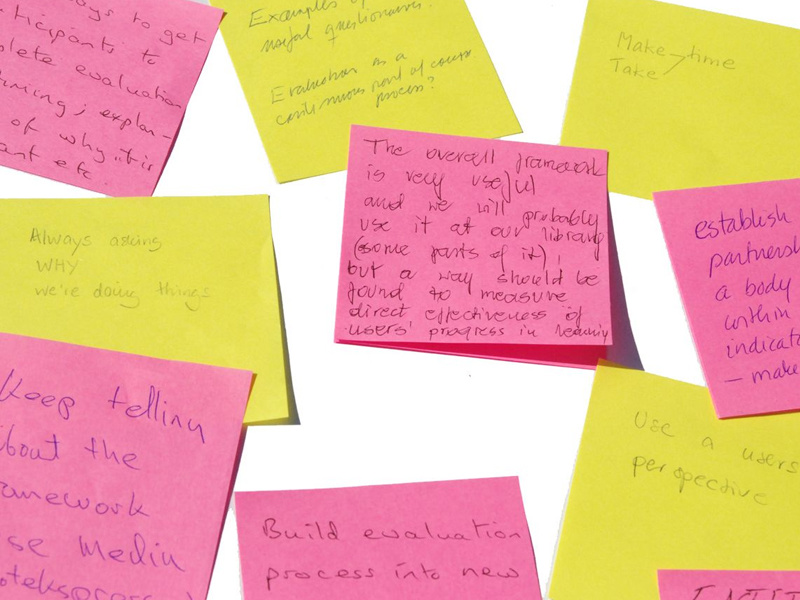 ys to get
ticipants to
plete evaluation
ning; explan-
of why it is
ant etc.
Examples of
useful questionnaires?
Evaluation as a
continuous part of course
process?
Make time
Take
The overall framework
is very useful
and we will probably
use it at our library
(some parts of it),
but a way should be
found to measure
direct effectiveness of
users' progress in learning
establish
partnersh
a body
within
indicato
- make
Always asking
WHY
we're doing things
Keep telling
about the
ramework
se Mediu
Use a users
perspective
Build evaluation
process into new